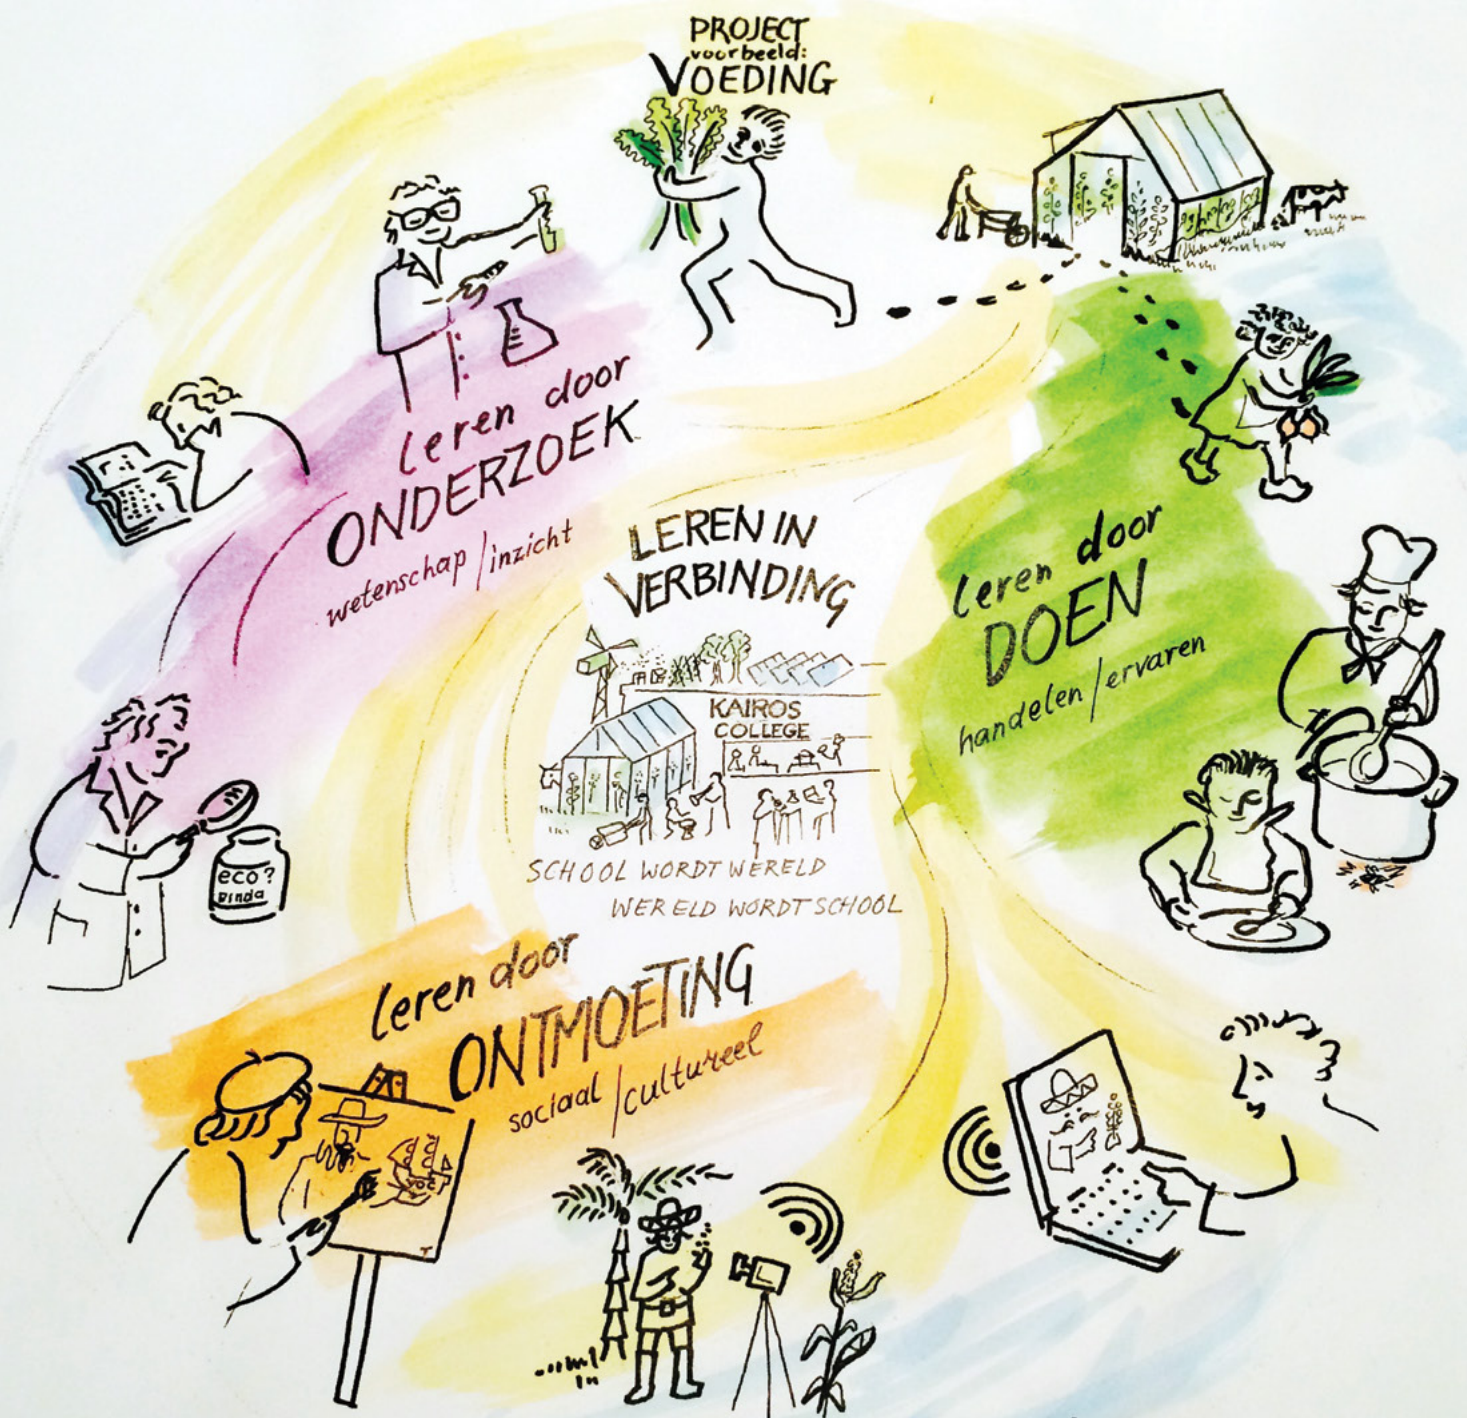 PROJECT
voorbeeld:
VOEDING
leren door
ONDERZOEK
wetenschap/inzicht
LEREN IN
VERBINDING
KAIROS
COLLEGE
SCHOOL WORDT WERELD
WERELD WORDT SCHOOL
leren door
DOEN
handelen/ervaren
eco?
PINDA
leren door
ONTMOETING
sociaal/cultureel